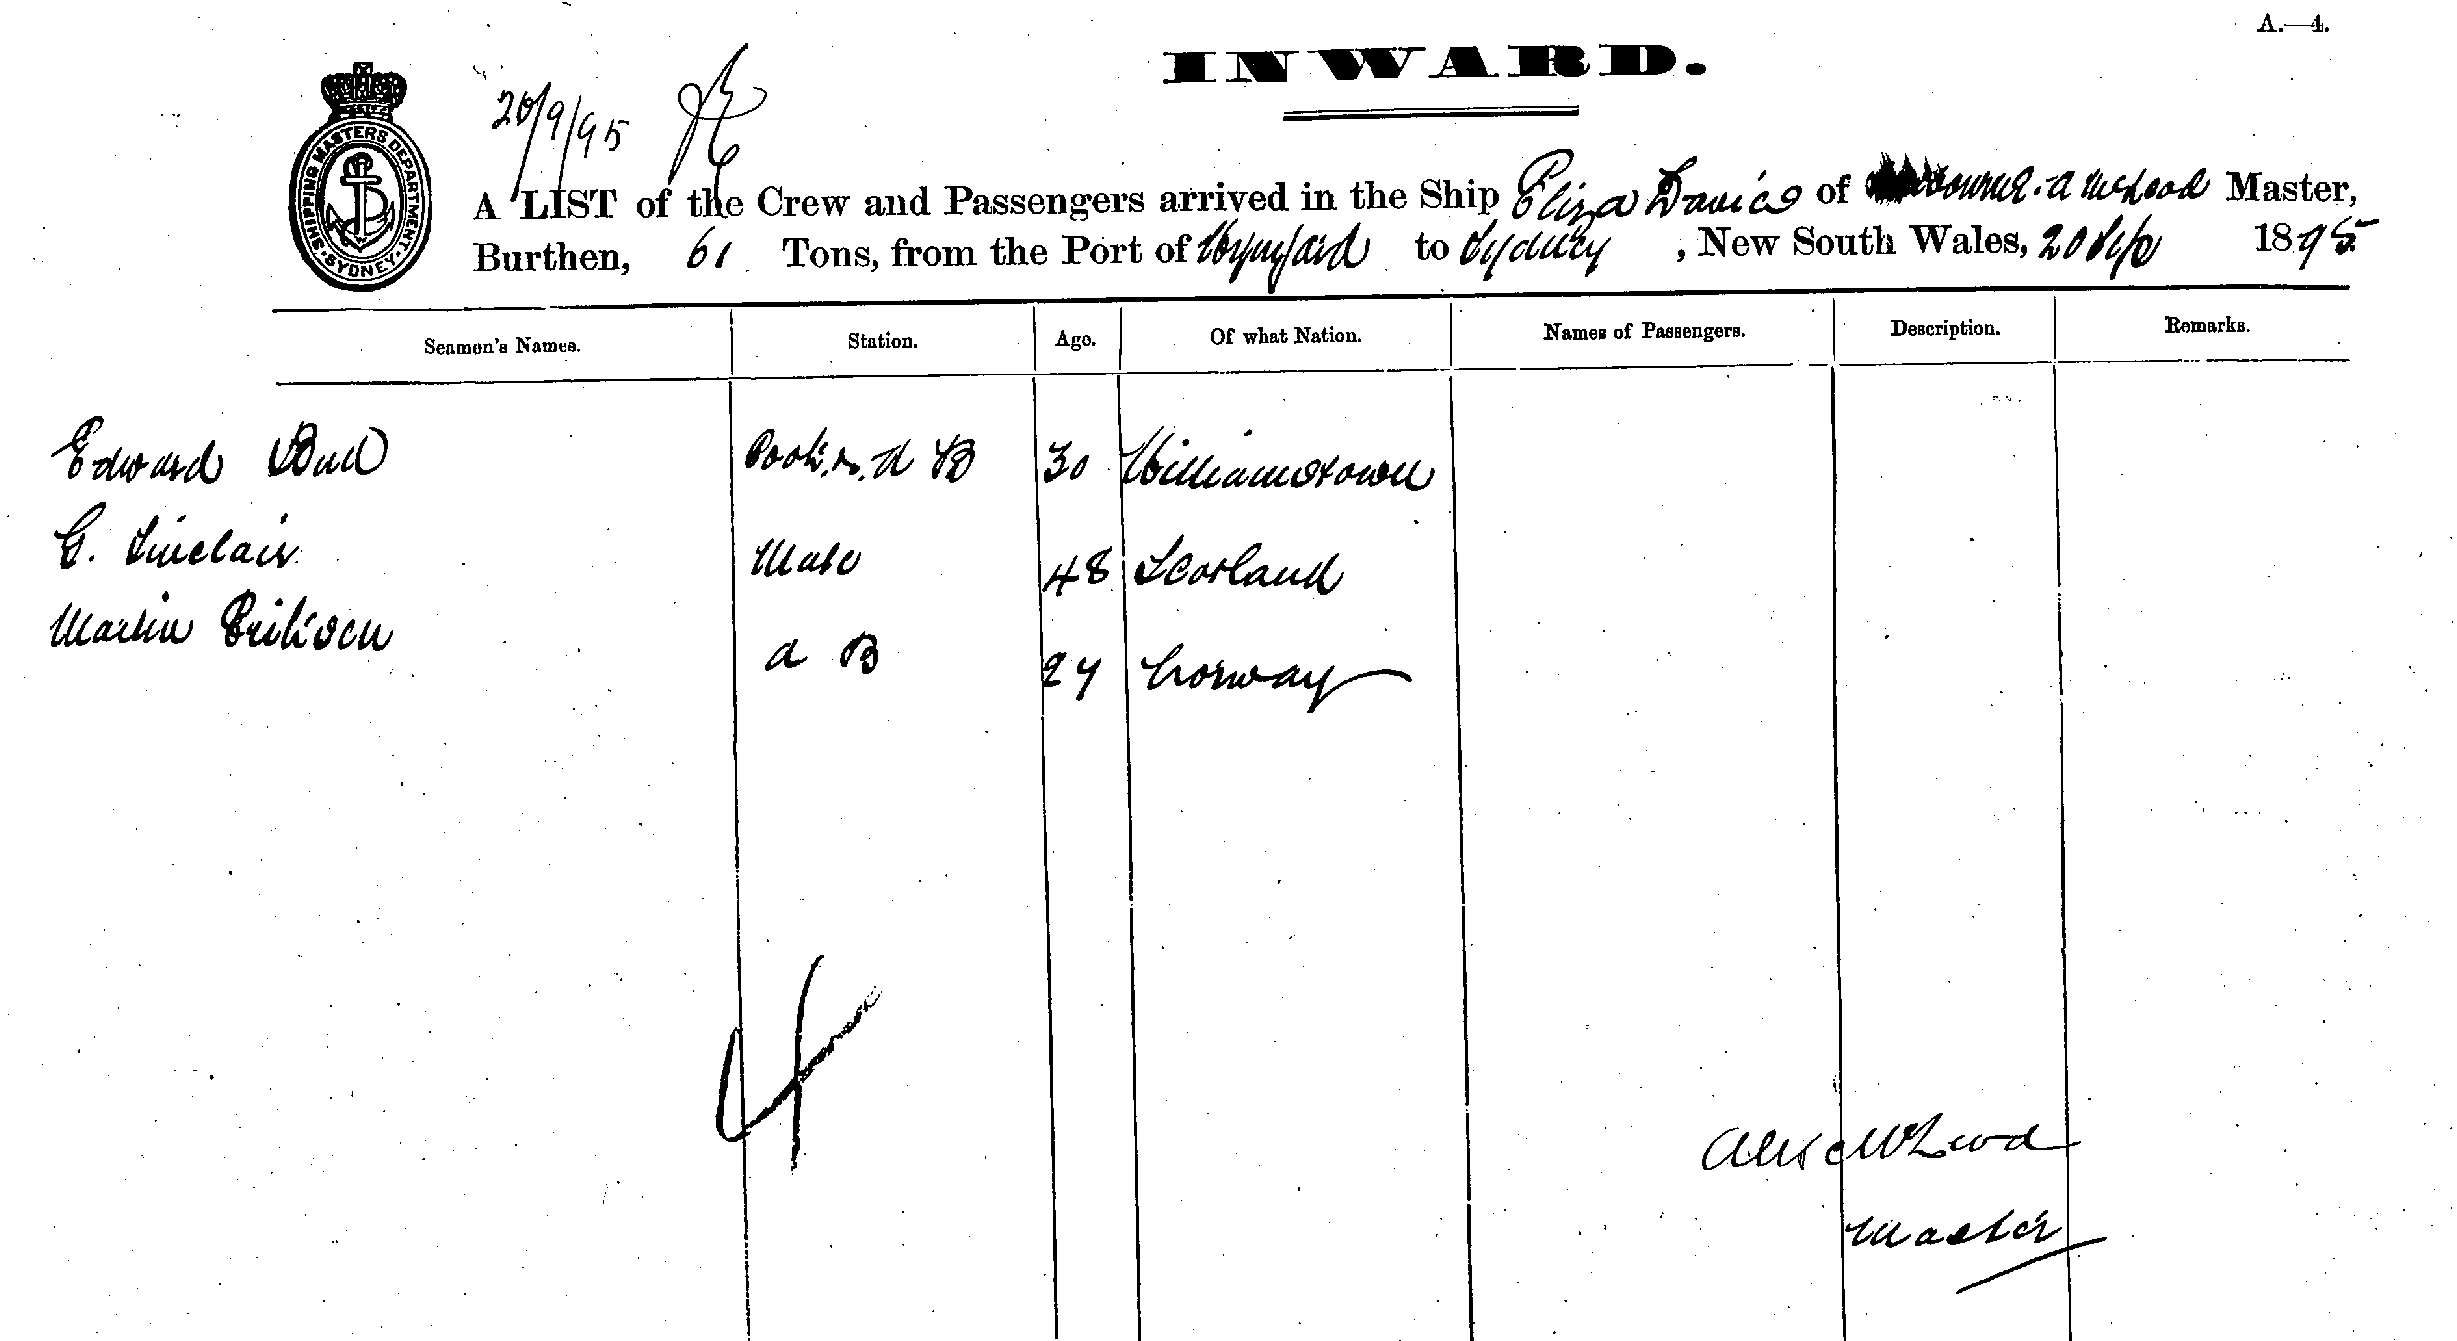 A.—4.
INWARD.
20/9/95
SHIPPING MASTERS DEPARTMENT
SYDNEY
A LIST of the Crew and Passengers arrived in the Ship Eliza Davies of A McLeod Master,
Burthen, 61 Tons, from the Port of Wynyard to Sydney, New South Wales, 20 Sep 1895
Seamen's Names. Station. Age. Of what Nation. Names of Passengers. Description. Remarks.
Edward 30 Williamstown
G. Sinclair Mate 48 Scotland
Martin Eriksen A B 27 Norway
Alex McLeod
Master